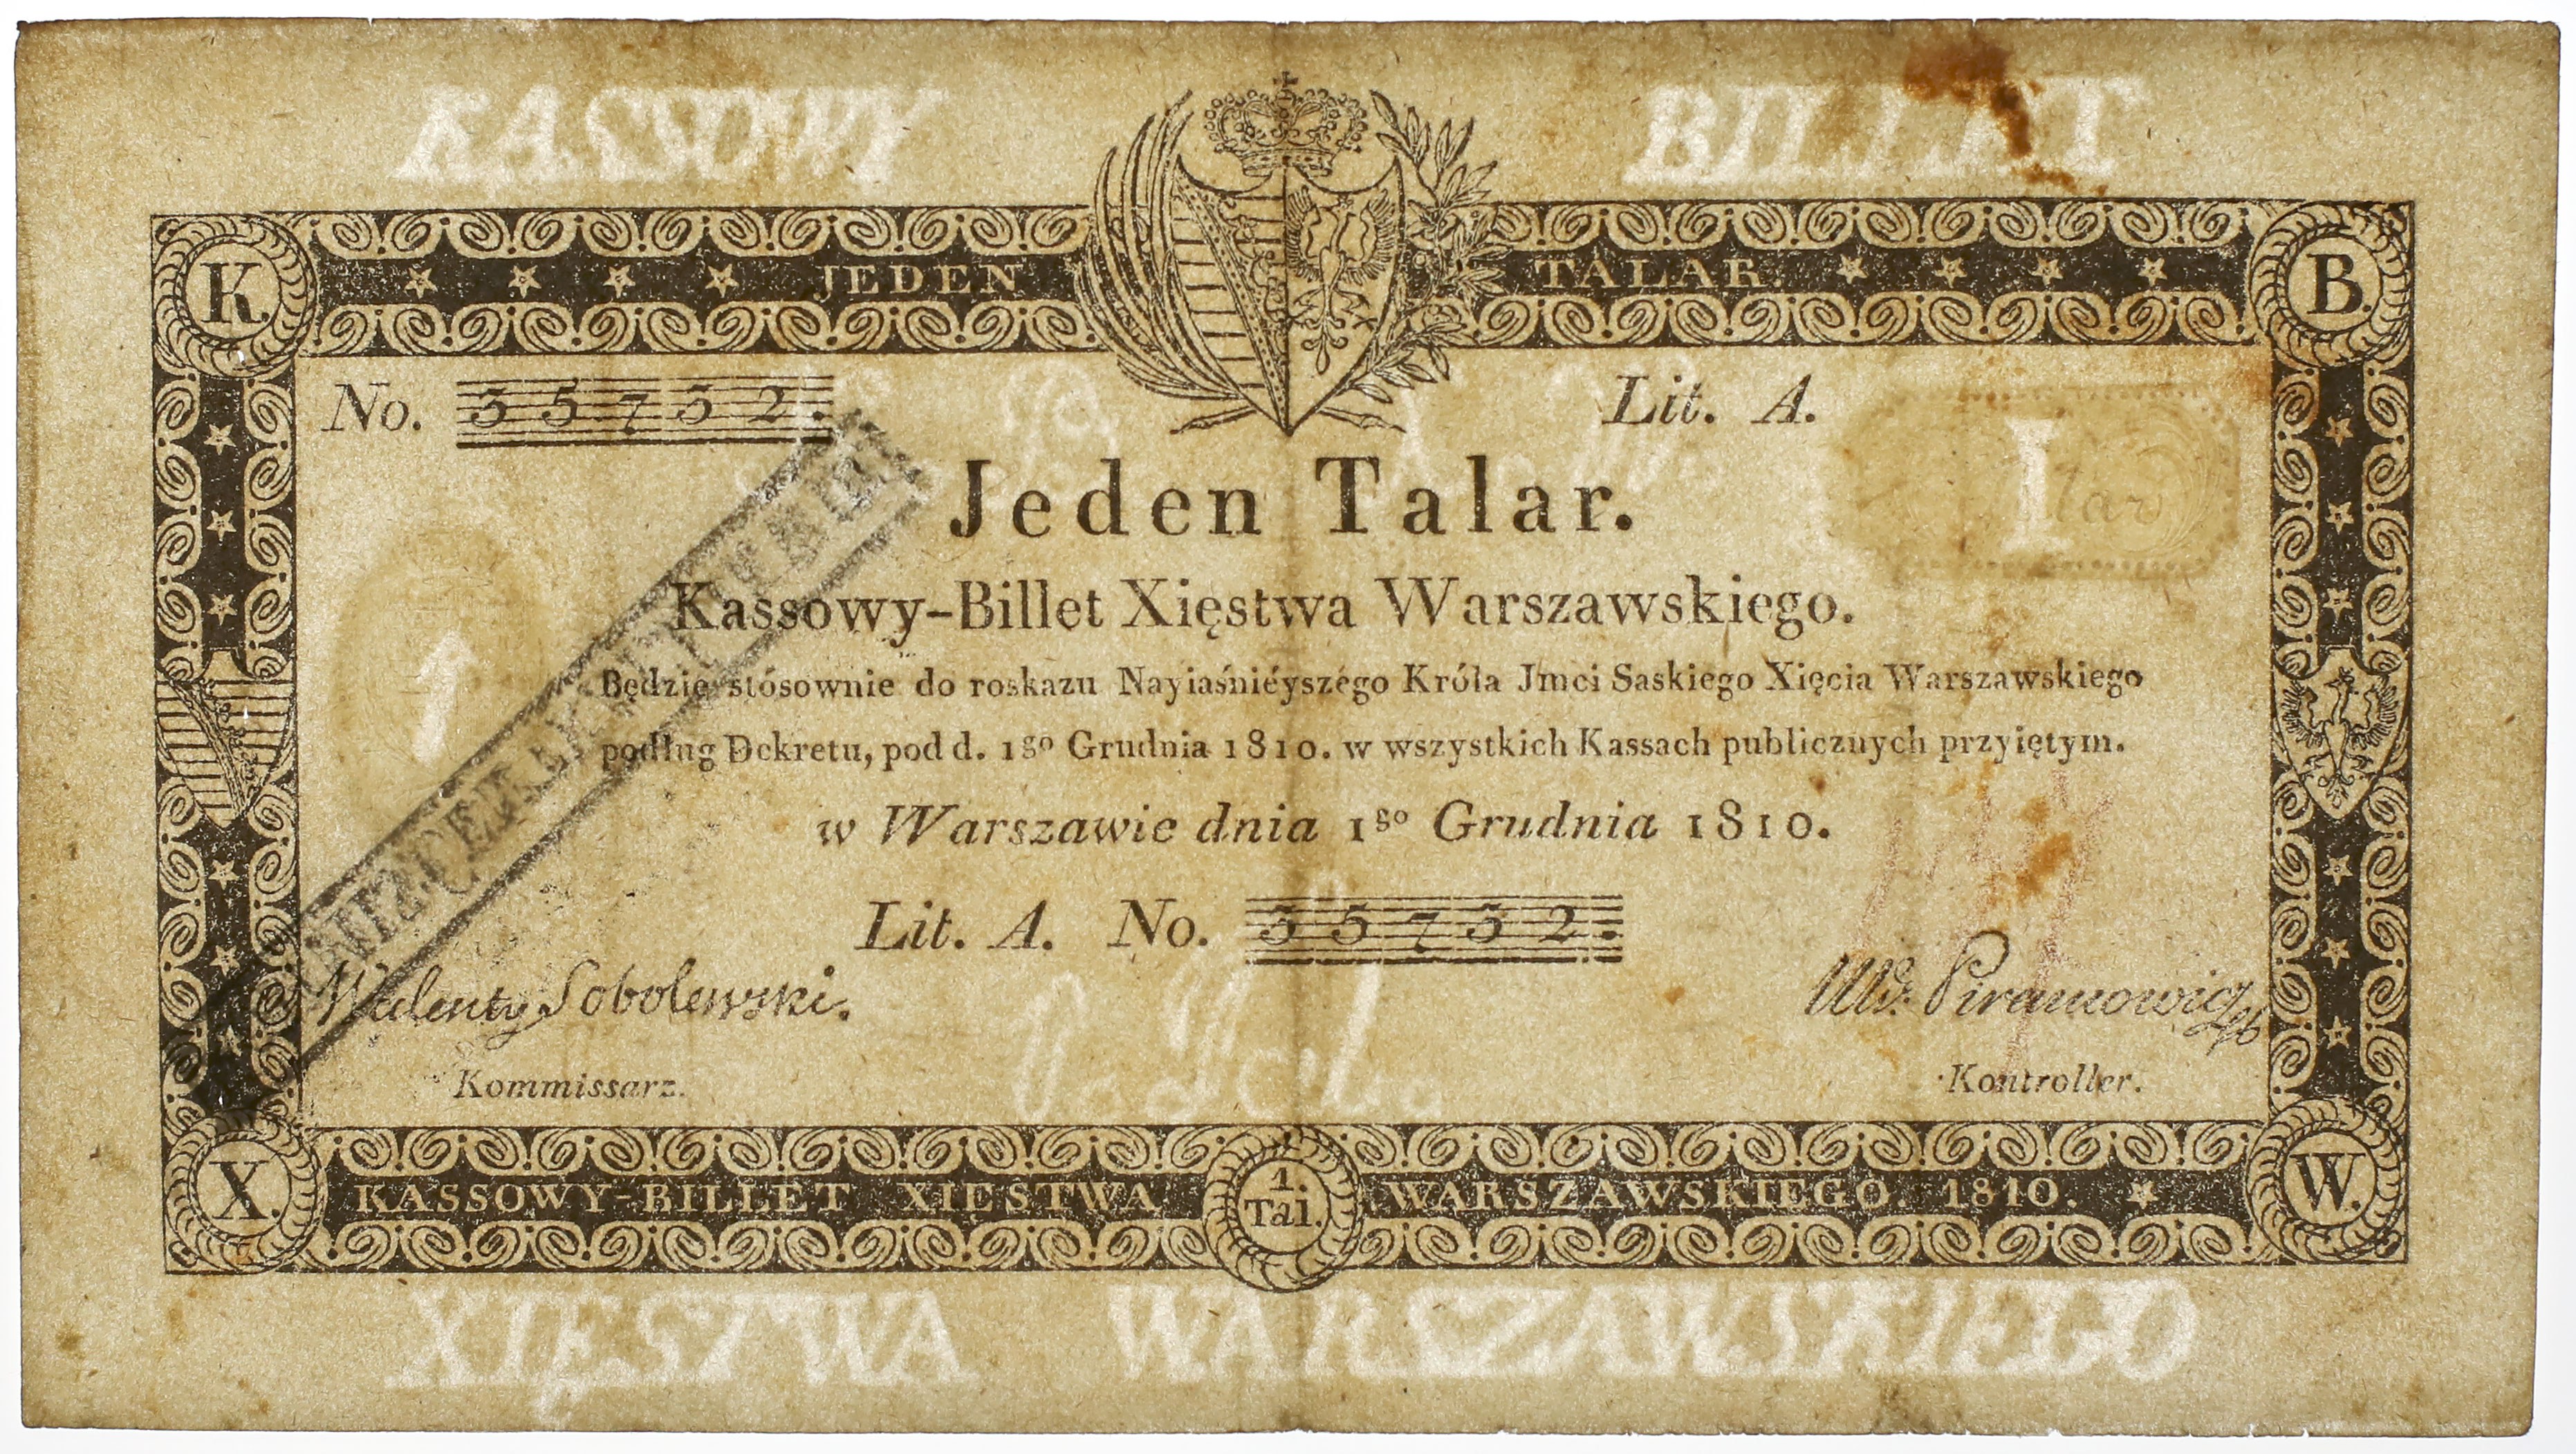 KASSOWY BILLET
K. JEDEN TALAR. B.
No. 35732. Lit. A.
I
Jeden Talar.
Kassowy-Billet Xięstwa Warszawskiego.
1
Będzie stósownie do roskazu Nayiaśniéyszégo Króla Jmci Saskiego Xięcia Warszawskiego
podług Dekretu, pod d. 1go Grudnia 1810. w wszystkich Kassach publicznych przyiętym.
w Warszawie dnia 1go Grudnia 1810.
Lit. A. No. 35732.
Walenty Sobolewski.
Kommissarz.
Piramowicz
Kontroller.
X. KASSOWY-BILLET XIĘSTWA 1. Tal. WARSZAWSKIEGO. 1810. W.
XIĘSTWA WARSZAWSKIEGO